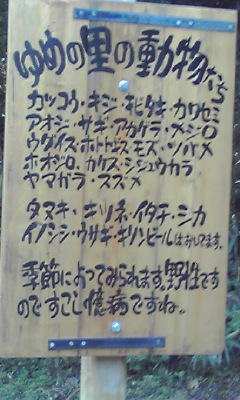 ゆめの里の動物たち
カッコウ・キジ・キビタキ・カワセミ
アオジ・サギ・アカゲラ・メジロ
ウグイス・ホトトギス・モズ・ツバメ
ホオジロ・カケス・シジュウカラ
ヤマガラ・スズメ
タヌキ・キツネ・イタチ・シカ
イノシシ・ウサギ・キリンビールはおいてます。
季節によってみられます。野性です
のですこし憶病ですね。